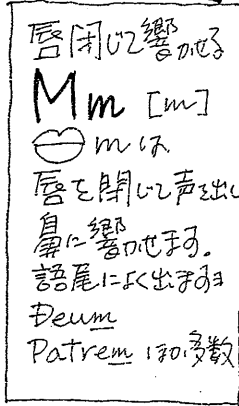 唇閉じて響かせる
Mm [m]
mは
唇を閉じて声を出し
鼻に響かせます。
語尾によく出ますョ
Deum
Patrem ほか多数